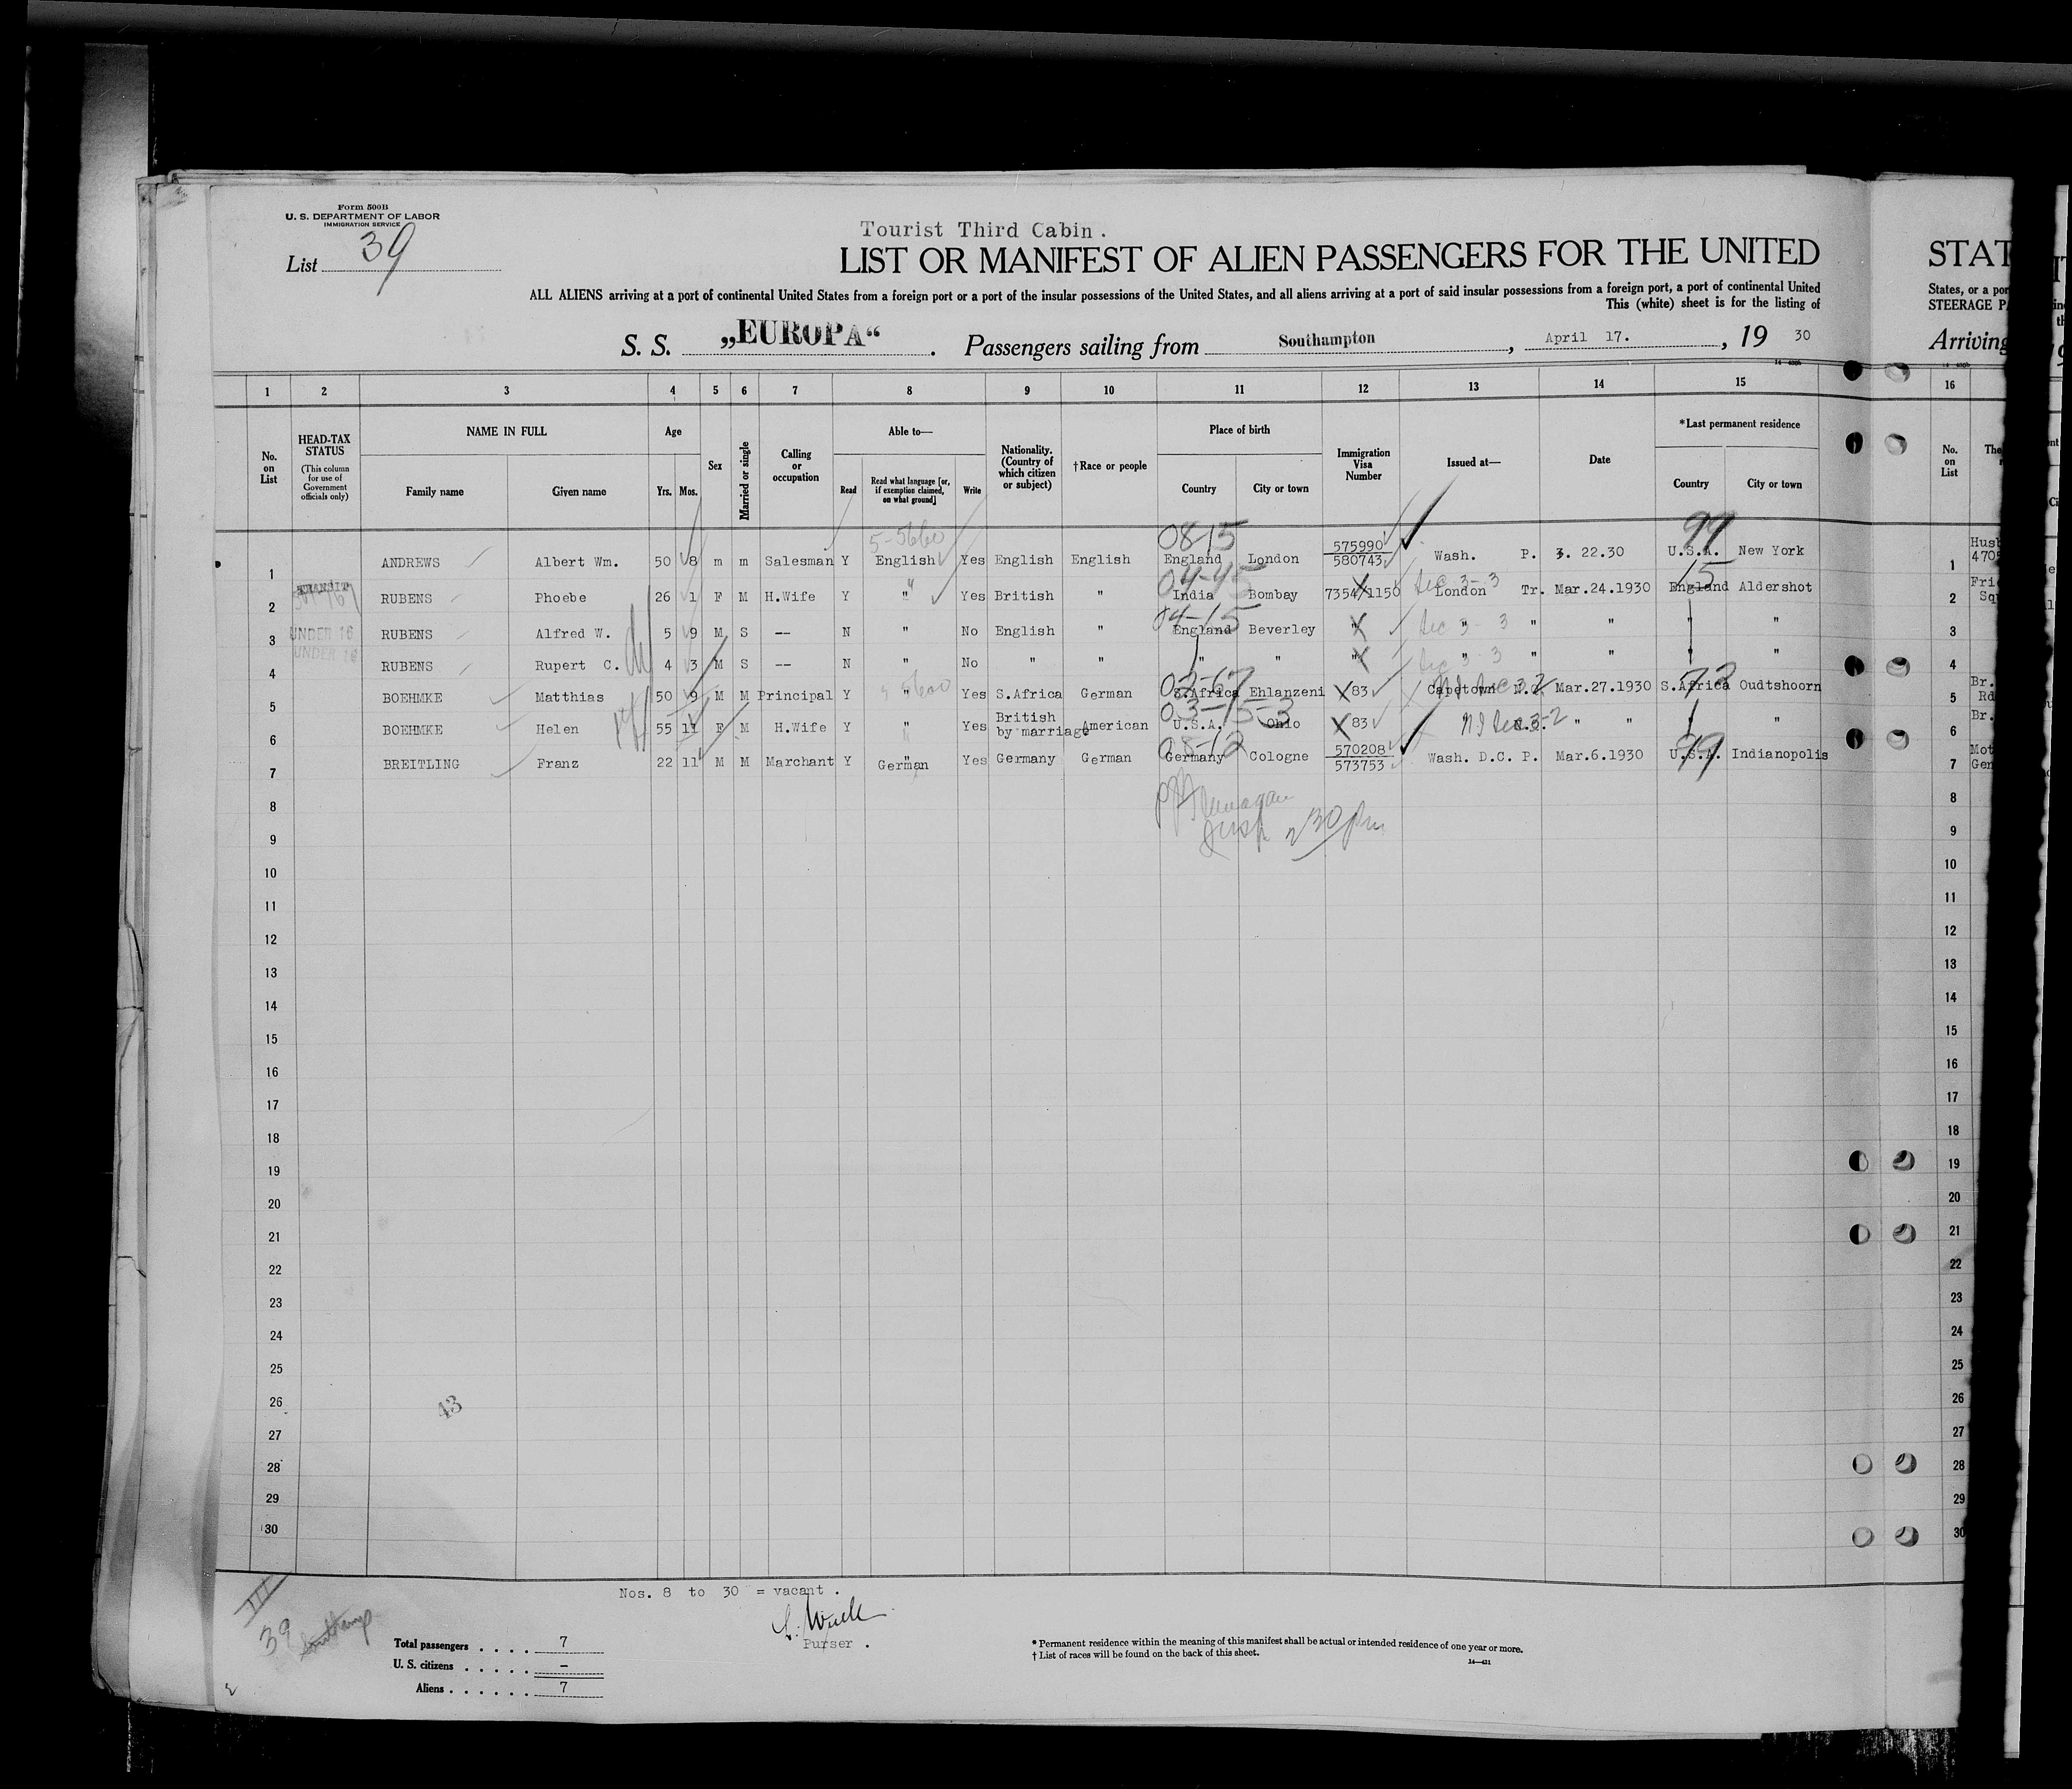 Form 500B
U. S. DEPARTMENT OF LABOR
IMMIGRATION SERVICE
List 39
Tourist Third Cabin.
LIST OR MANIFEST OF ALIEN PASSENGERS FOR THE UNITED
ALL ALIENS arriving at a port of continental United States from a foreign port or a port of the insular possessions of the United States, and all aliens arriving at a port of said insular possessions from a foreign port, a port of continental United
This (white) sheet is for the listing of
S. S. „EUROPA“ . Passengers sailing from Southampton , April 17. , 19 30
STAT
States, or a por
STEERAGE P
Arriving
1 2 3 4 5 6 7 8 9 10 11 12 13 14 15 16
No. on List
HEAD-TAX STATUS
(This column for use of Government officials only)
NAME IN FULL
Family name
Given name
Age
Yrs. Mos.
Sex
Married or single
Calling or occupation
Able to—
Read
Read what language [or, if exemption claimed, on what ground]
Write
Nationality. (Country of which citizen or subject)
†Race or people
Place of birth
Country
City or town
Immigration Visa Number
Issued at—
Date
*Last permanent residence
Country
City or town
No. on List
The
5-5660 0815 99
1 ANDREWS Albert Wm. 50 8 m m Salesman Y English Yes English English England London 575990 580743 Wash. P. 3. 22.30 U.S.A. New York 1 Husb 470
TRANSIT 04-45 Sec 3-3 15
2 RUBENS Phoebe 26 1 F M H.Wife Y " Yes British " India Bombay 7354/1150 London Tr. Mar.24.1930 England Aldershot 2 Frie Squ
UNDER 16 04-15 Sec 3-3
3 RUBENS Alfred W. 5 9 M S -- N " No English " England Beverley " " " " " " 3
UNDER 16 Sec 3-3
4 RUBENS Rupert C. 4 3 M S -- N " No " " " " " " " " " " 4
02-67 72
5 BOEHMKE Matthias 50 9 M M Principal Y " Yes S.Africa German S.Africa Ehlanzeni 83 Capetown Mar.27.1930 S.Africa Oudtshoorn 5 Br. Rd
03-15-3
6 BOEHMKE Helen 55 11 F M H.Wife Y " Yes British by marriage American U.S.A. Ohio 83 Sec 3-2 " " " " 6 Br.
08-12 99
7 BREITLING Franz 22 11 M M Marchant Y German Yes Germany German Germany Cologne 570208 573753 Wash. D.C. P. Mar.6.1930 U.S.A. Indianopolis 7 Mot Gen
8 8
9 Insp 230 pm 9
10 10
11 11
12 12
13 13
14 14
15 15
16 16
17 17
18 18
19 19
20 20
21 21
22 22
23 23
24 24
25 25
26 43 26
27 27
28 28
29 29
30 30
Nos. 8 to 30 = vacant .
III
39 Southamp
Purser .
Total passengers . . . . . 7
U. S. citizens . . . . . –
Aliens . . . . . . 7
* Permanent residence within the meaning of this manifest shall be actual or intended residence of one year or more.
† List of races will be found on the back of this sheet.
14—421